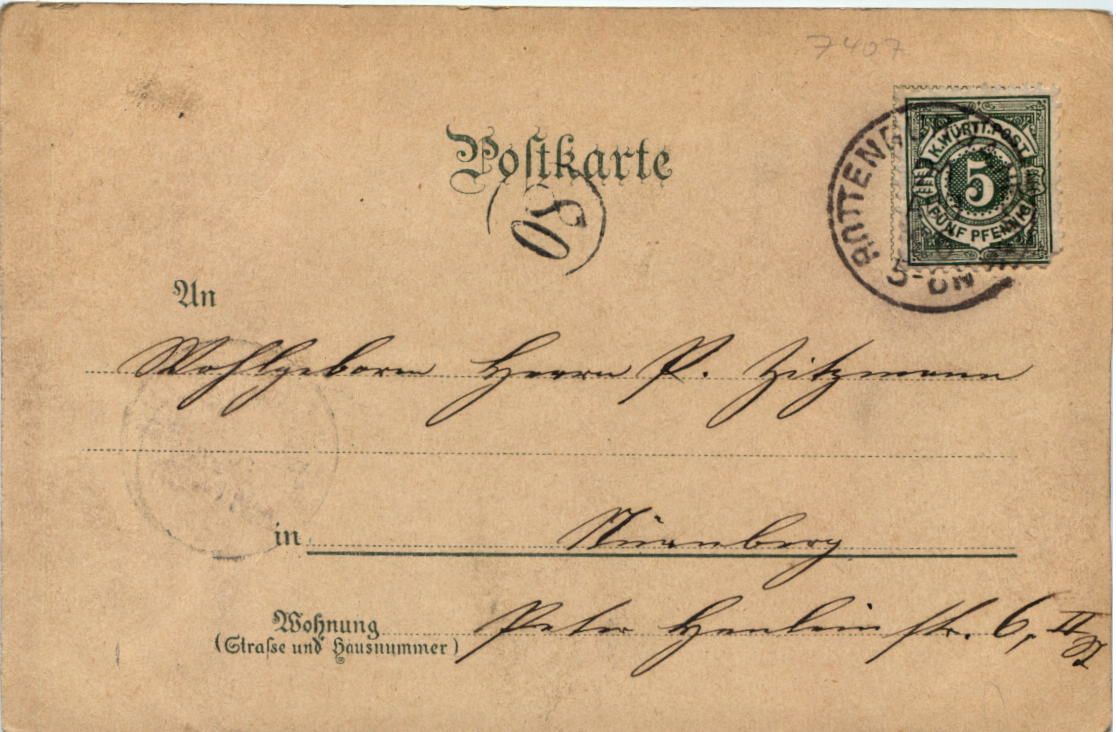 7407
Postkarte
80
K. WÜRTT. POST
5
FÜNF PFENNIG
ROTTEN
5-6 N
An
Wohlgeboren Herrn P. Zitzmann
in Nürnberg
Wohnung Peter Henlein str. 6, II
(Strasse und Hausnummer)